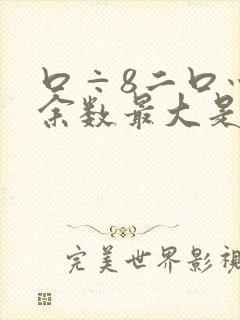 口÷8二口…
余数最大是
完美世界影视